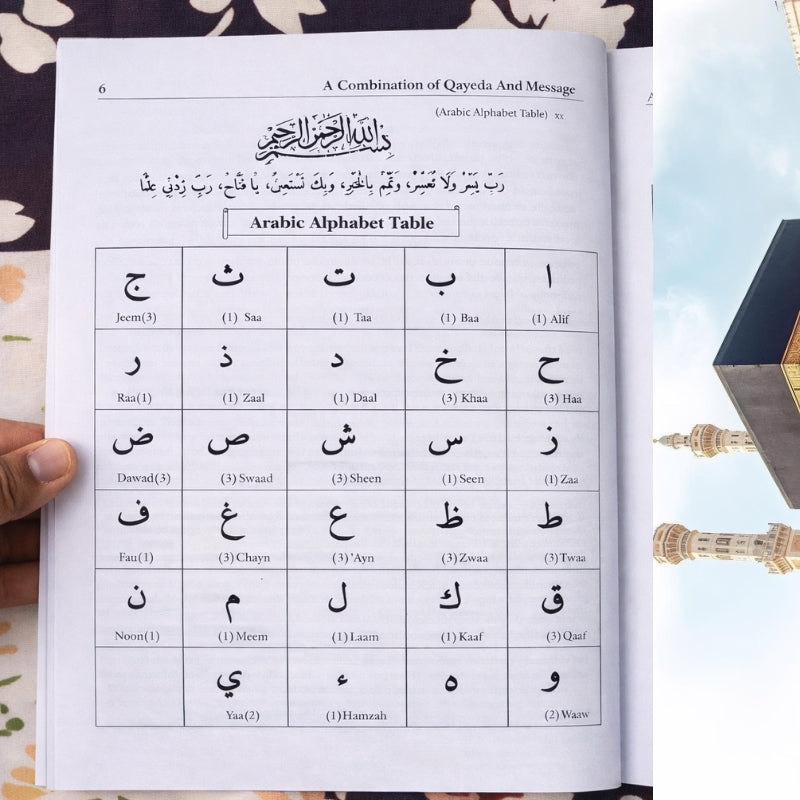 6 A Combination of Qayeda And Message
(Arabic Alphabet Table) xx
بسم الله الرحمن الرحيم
رَبِّ يَسِّرْ وَلَا تُعَسِّرْ، وَتَمِّمْ بِالْخَيْرِ، وَبِكَ نَسْتَعِيْنُ، يَا فَتَّاحُ، رَبِّ زِدْنِي عِلْمًا
Arabic Alphabet Table
ا ب ت ث ج
(1) Alif (1) Baa (1) Taa (1) Saa Jeem(3)
ح خ د ذ ر
(3) Haa (3) Khaa (1) Daal (1) Zaal Raa(1)
ز س ش ص ض
(1) Zaa (1) Seen (3) Sheen (3) Swaad Dawad(3)
ط ظ ع غ ف
(3) Twaa (3) Zwaa (3) 'Ayn (3) Chayn Fau(1)
ق ك ل م ن
(3) Qaaf (1) Kaaf (1) Laam (1) Meem Noon(1)
و ه ء ي
(2) Waaw (1) Hamzah Yaa(2)